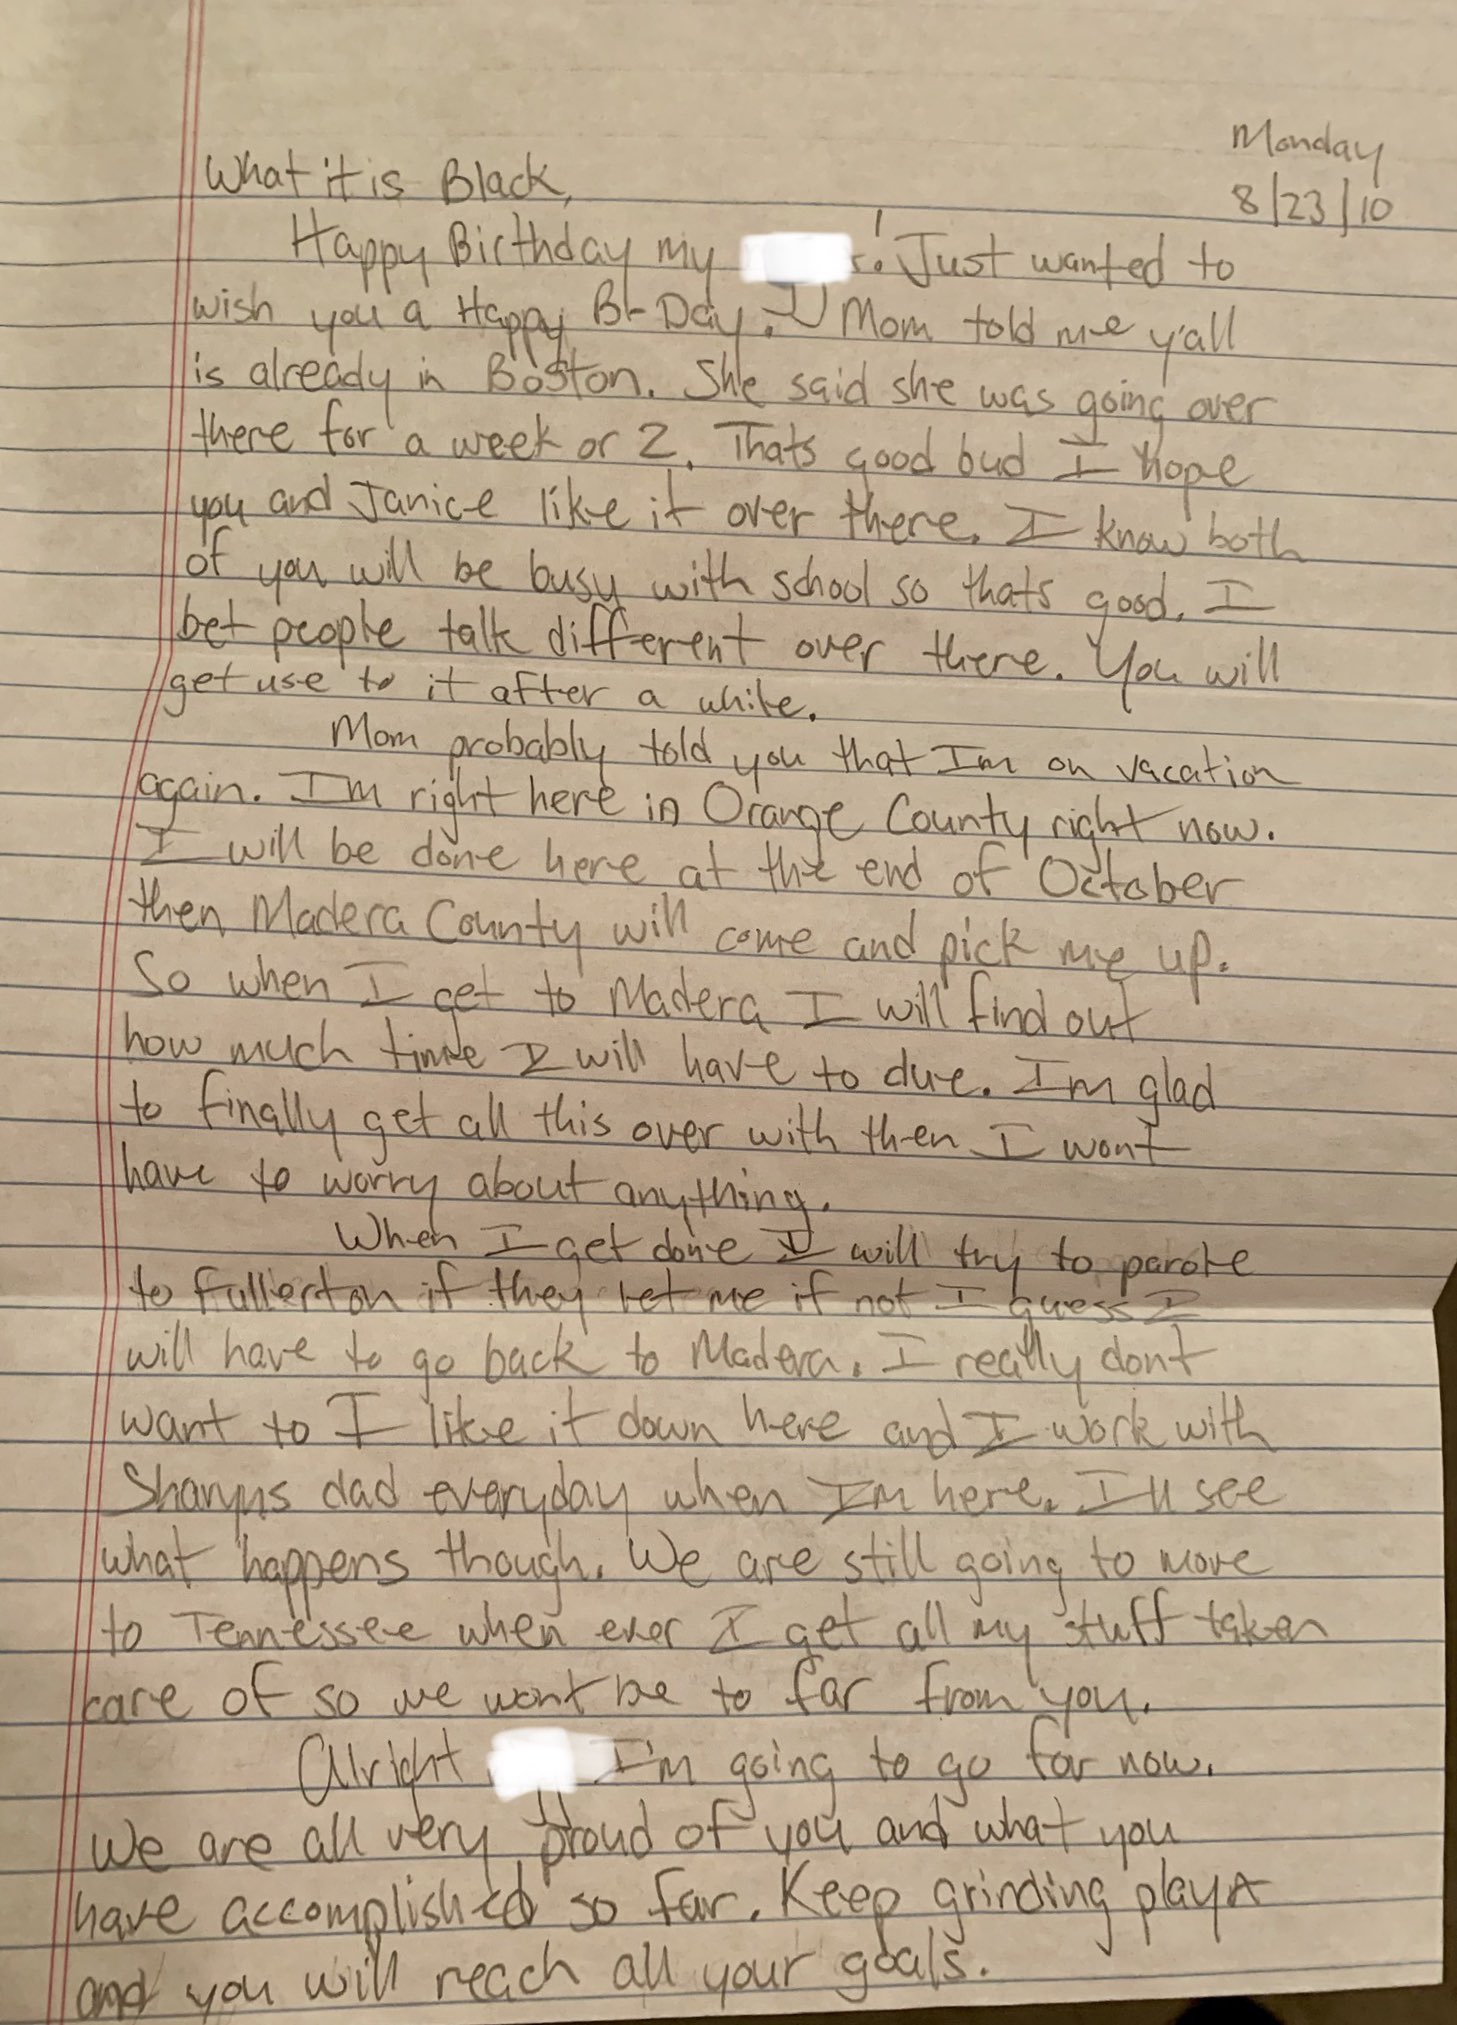 Monday
8/23/10
What it is Black,
Happy Birthday my ! Just wanted to
wish you a Happy B-Day. Mom told me y'all
is already in Boston. She said she was going over
there for a week or 2. Thats good bud I hope
you and Janice like it over there. I know both
of you will be busy with school so thats good. I
bet people talk different over there. You will
get use to it after a while.
Mom probably told you that Im on vacation
again. Im right here in Orange County right now.
I will be done here at the end of October
then Madera County will come and pick me up.
So when I get to Madera I will find out
how much time I will have to due. Im glad
to finally get all this over with then I wont
have to worry about anything.
When I get done I will try to parole
to Fullerton if they let me if not I guess I
will have to go back to Madera. I really dont
want to I like it down here and I work with
Sharyns dad everyday when Im here. I'll see
what happens though. We are still going to move
to Tennessee when ever I get all my stuff taken
care of so we wont be to far from you.
Alright I'm going to go for now.
We are all very proud of you and what you
have accomplished so far. Keep grinding playA
and you will reach all your goals.